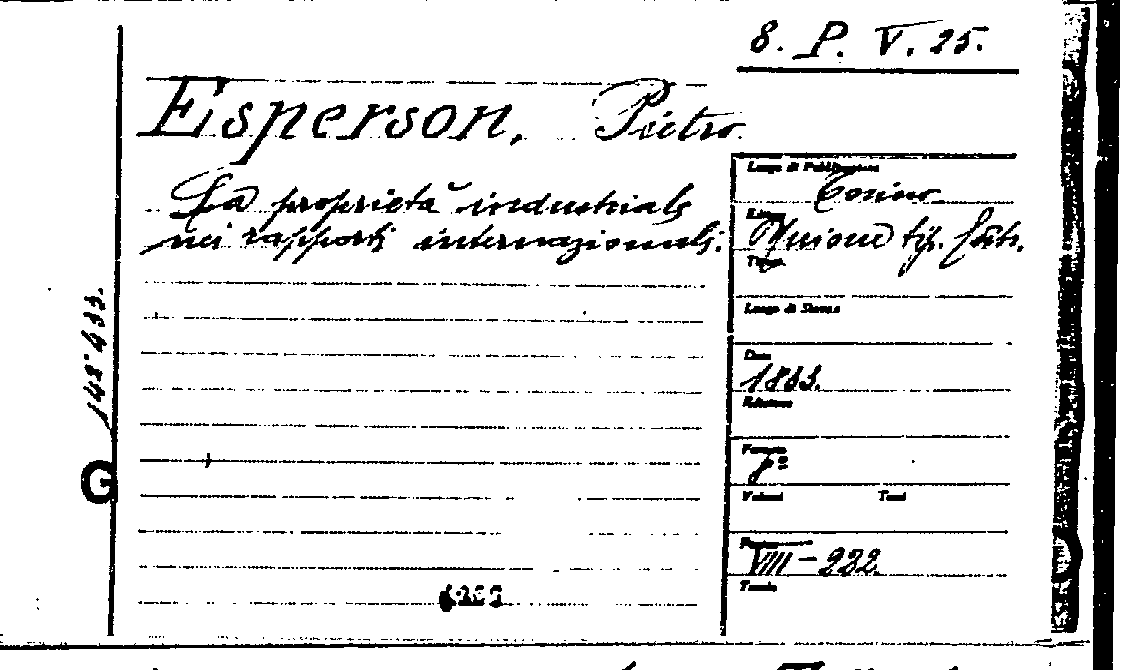 8. P. V. 25.
Esperson, Pietro
La proprietà industriale
nei rapporti internazionali.
Luogo di Pubblicazione
Torino
Unione tip. edit.
Luogo di Stampa
Data
1883.
Edizione
Formato
8º
Volumi Tomi
VIII - 222.
Tavole
148433.
G